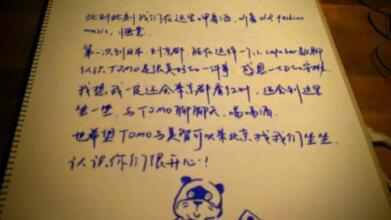 此刻此刻我们在这里呷着酒，听着old fashion
music，惬意。
第一次到日本，到京都 能在这样一个小 bar聊
认识TOMO是很美好的一件事。感恩一切的安排
我想我一定还会来京都看红叶，还会到这里
坐一坐，与TOMO聊聊天，喝喝酒。
也希望TOMO与美智可以来北京找我们坐坐。
认识你们很开心！